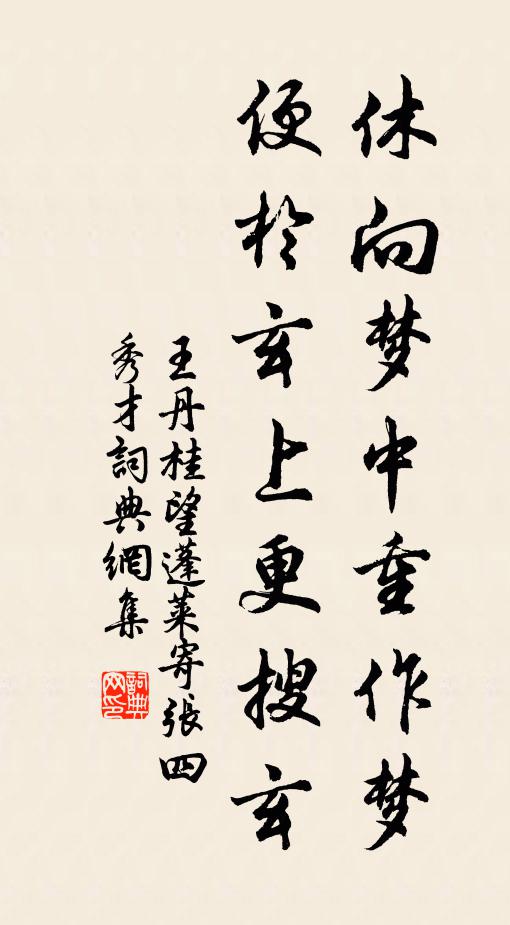 休向梦中重作梦
便於玄上更搜玄
王丹桂望蓬莱寄张四
秀才詞典網集
詞典
网印